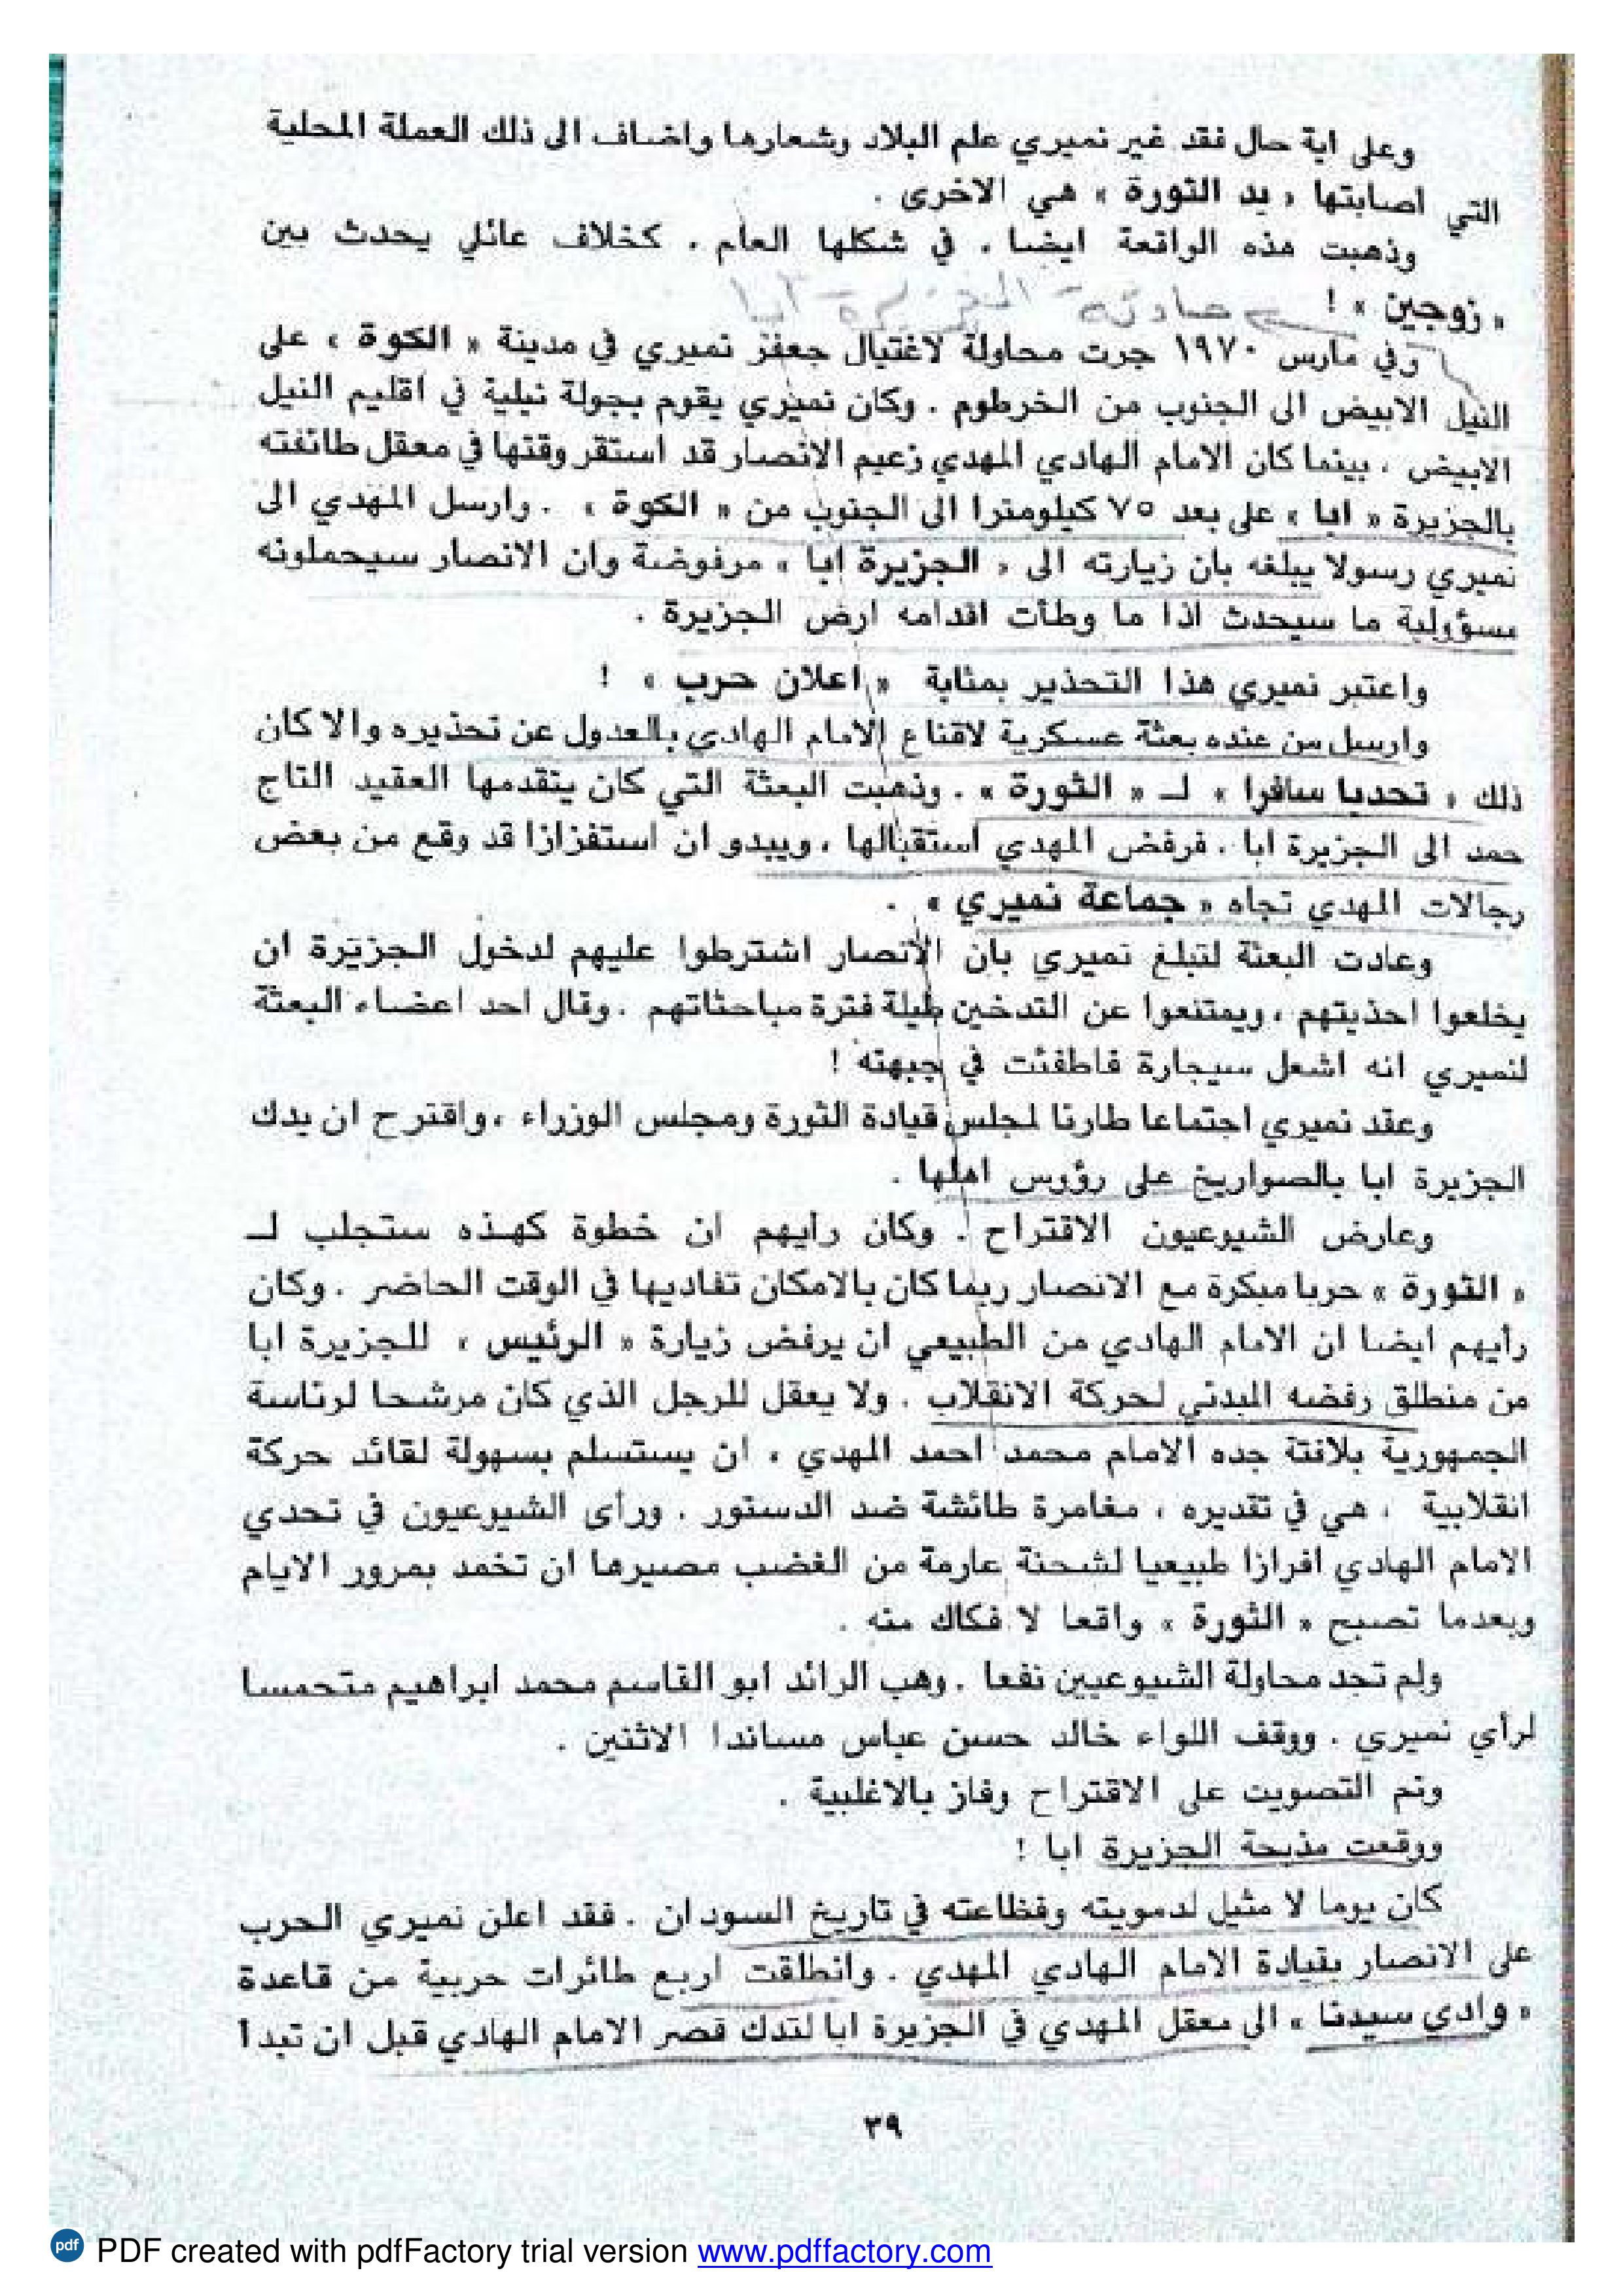 وعلى اية حال فقد غير نميري علم البلاد وشعارها واضاف الى ذلك العملة المحلية
التي اصابتها « يد الثورة » هي الاخرى .
وذهبت هذه الواقعة ايضا ، في شكلها العام ، كخلاف عائلي يحدث بين
« زوجين » !
حادثة الجزيرة ابا
وفي مارس ١٩٧٠ جرت محاولة لاغتيال جعفر نميري في مدينة « الكوة » على
النيل الابيض الى الجنوب من الخرطوم . وكان نميري يقوم بجولة نيلية في اقليم النيل
الابيض ، بينما كان الامام الهادي المهدي زعيم الانصار قد استقر وقتها في معقل طائفته
بالجزيرة « ابا » على بعد ٧٥ كيلومترا الى الجنوب من « الكوة » . وارسل المهدي الى
نميري رسولا يبلغه بان زيارته الى « الجزيرة ابا » مرفوضة وان الانصار سيحملونه
مسؤولية ما سيحدث اذا ما وطأت اقدامه ارض الجزيرة .
واعتبر نميري هذا التحذير بمثابة « اعلان حرب » !
وارسل من عنده بعثة عسكرية لاقناع الامام الهادي بالعدول عن تحذيره والا كان
ذلك « تحديا سافرا » لـ « الثورة » . وذهبت البعثة التي كان يتقدمها العقيد التاج
حمد الى الجزيرة ابا . فرفض المهدي استقبالها ، ويبدو ان استفزازا قد وقع من بعض
رجالات المهدي تجاه « جماعة نميري » .
وعادت البعثة لتبلغ نميري بان الانصار اشترطوا عليهم لدخول الجزيرة ان
يخلعوا احذيتهم ، ويمتنعوا عن التدخين طيلة فترة مباحثاتهم . وقال احد اعضاء البعثة
لنميري انه اشعل سيجارة فاطفئت في جبهته !
وعقد نميري اجتماعا طارئا لمجلس قيادة الثورة ومجلس الوزراء ، واقترح ان يدك
الجزيرة ابا بالصواريخ على رؤوس اهلها .
وعارض الشيوعيون الاقتراح . وكان رأيهم ان خطوة كهذه ستجلب لـ
« الثورة » حربا مبكرة مع الانصار ربما كان بالامكان تفاديها في الوقت الحاضر . وكان
رأيهم ايضا ان الامام الهادي من الطبيعي ان يرفض زيارة « الرئيس » للجزيرة ابا
من منطلق رفضه المبدئي لحركة الانقلاب . ولا يعقل للرجل الذي كان مرشحا لرئاسة
الجمهورية بلافتة جده الامام محمد احمد المهدي ، ان يستسلم بسهولة لقائد حركة
انقلابية ، هي في تقديره ، مغامرة طائشة ضد الدستور . ورأى الشيوعيون في تحدي
الامام الهادي افرازا طبيعيا لشحنة عارمة من الغضب مصيرها ان تخمد بمرور الايام
وبعدما تصبح « الثورة » واقعا لا فكاك منه .
ولم تجد محاولة الشيوعيين نفعا . وهب الرائد ابو القاسم محمد ابراهيم متحمسا
لرأي نميري . ووقف اللواء خالد حسن عباس مساندا الاثنين .
وتم التصويت على الاقتراح وفاز بالاغلبية .
ووقعت مذبحة الجزيرة ابا !
كان يوما لا مثيل لدمويته وفظاعته في تاريخ السودان . فقد اعلن نميري الحرب
على الانصار بقيادة الامام الهادي المهدي . وانطلقت اربع طائرات حربية من قاعدة
« وادي سيدنا » الى معقل المهدي في الجزيرة ابا لتدك قصر الامام الهادي قبل ان تبدأ
٣٩
PDF created with pdfFactory trial version www.pdffactory.com